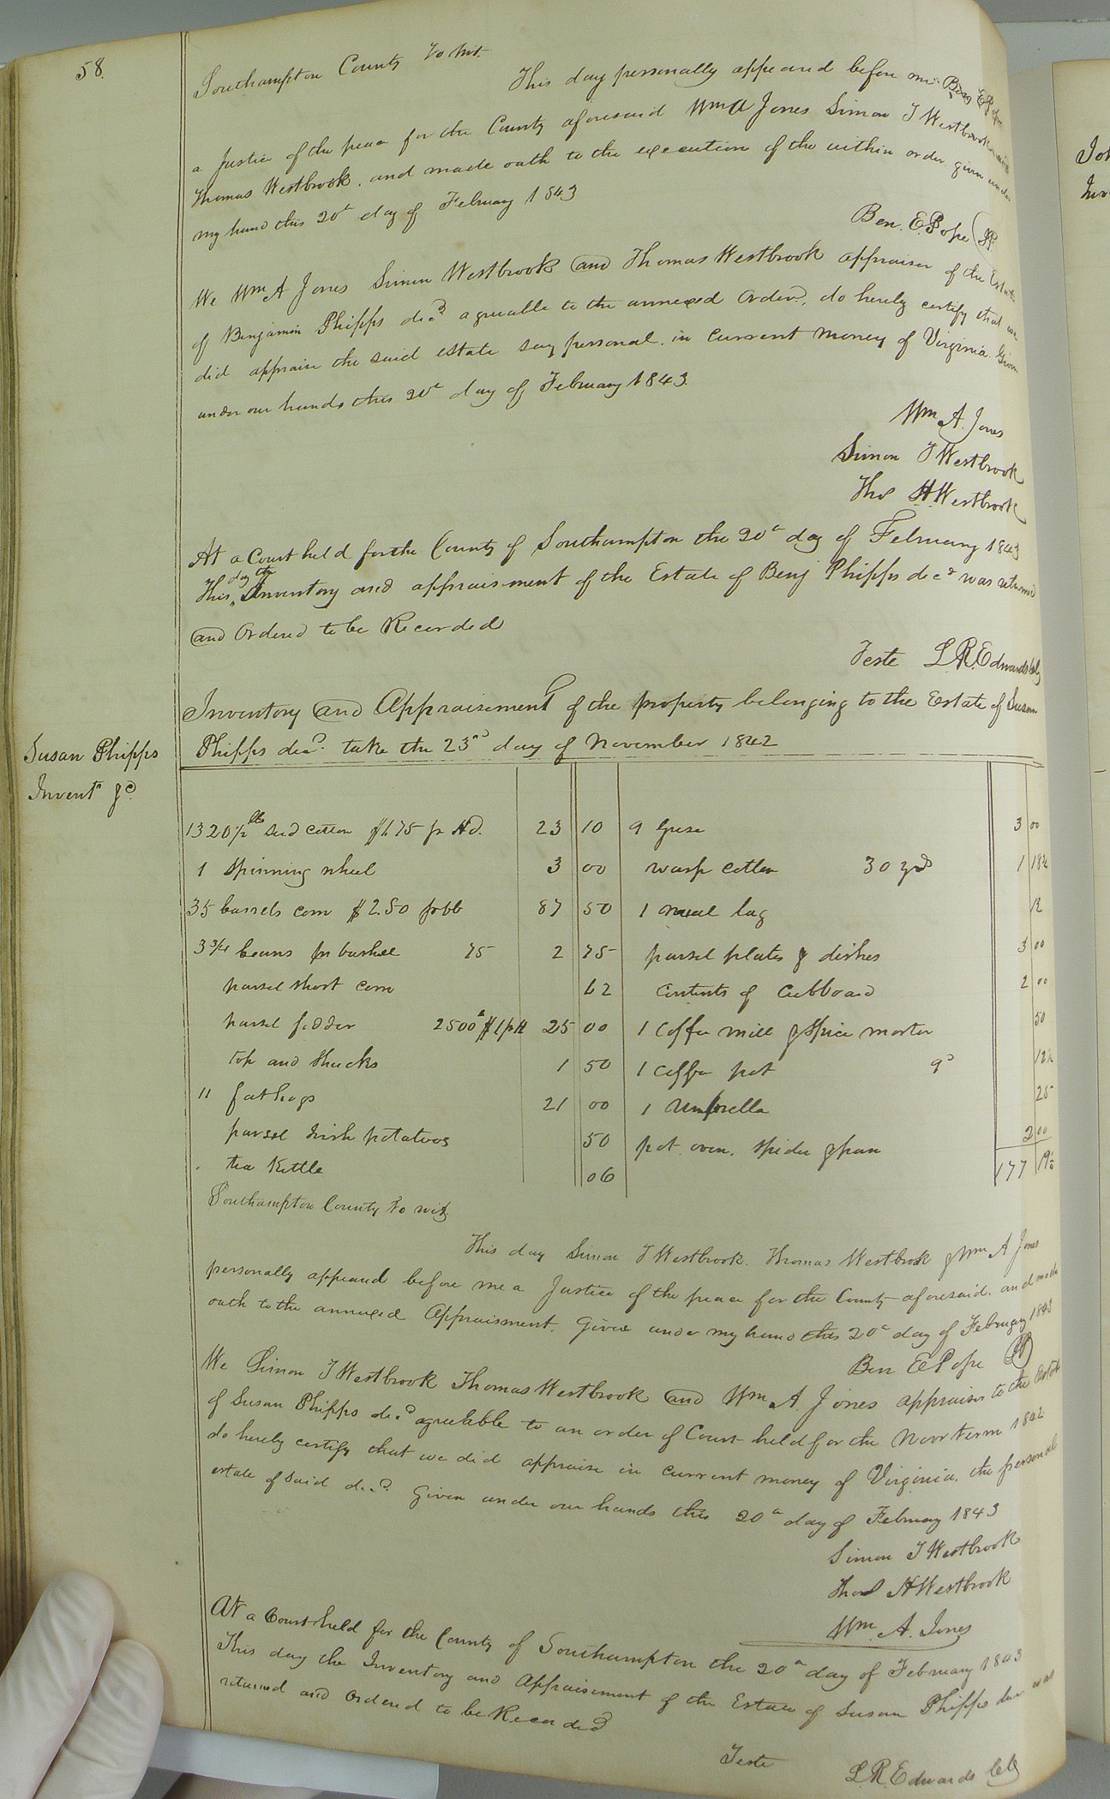 58
Southampton County to wit.
This day personally appeared before me Ben E Pope
a Justice of the peace for the County aforesaid Wm A Jones Simon T Westbrook and
Thomas Westbrook, and made oath to the execution of the within order given under
my hand this 20th day of February 1843
Ben. E Pope JP
We Wm A Jones Simon Westbrook and Thomas Westbrook appraiser of the Estate
of Benjamin Phipps decd agreeable to the annexed Order, do hereby certify that we
did appraise the said estate say personal. in Current Money of Virginia Given
under our hands this 20th day of February 1843.
Wm A. Jones
Simon T Westbrook
Thos H Westbrook
At a Court held for the County of Southampton the 20th day of February 1843
This day the Inventory and appraisment of the Estate of Benj Phipps decd was returned
and Ordered to be Recorded
Teste L. R. Edwards Clk
Inventory and Appraisement of the property belonging to the Estate of Susan
Phipps decd. take the 23rd day of November 1842
Susan Phipps
Invent &c
1320 1/2 lb Seed cotton $1.75 pr Hd. 23 10
1 Spinning wheel 3 00
35 barrels corn $2.50 pr bb 87 50
3 3/4 beans pr bushel 75 2 75
parsel short corn 62
parsel fodder 2500 lb $1 pH 25 00
top and shucks 1 50
11 fat hogs 21 00
parsel Irish potatoes 50
tea Kettle 06
9 Geese 3 00
warp cotton 30 yds 1 18 3/4
1 meal bag 12
parsel plates & dishes 3 00
contents of Cubboard 2 00
1 Coffee mill & Spice morter 50
1 coffee pot 9d 12 1/2
1 Umbrella 25
pot oven, spider & pan 2 00
177
Southampton County to wit
This day Simon T Westbrook. Thomas Westbrook & Wm A Jones
personally appeared before me a Justice of the peace for the County aforesaid. and made
oath to the annexed Appraisment. Given under my hand this 20th day of February 1843
Ben E Pope JP
We Simon T Westbrook Thomas Westbrook and Wm A. Jones appraiser to the Estate
of Susan Phipps decd agreeable to an order of Court held for the Novr term 1842
do hereby certify that we did appraise in current money of Virginia. the personal
estate of said decd. Given under our hands this 20th day of February 1843
Simon T Westbrook
Thos H Westbrook
Wm. A. Jones
At a Court held for the County of Southampton the 20th day of February 1843
This day the Inventory and Appraisement of the Estate of Susan Phipps decd was
returned and Ordered to be Recorded
Teste L. R. Edwards Clk